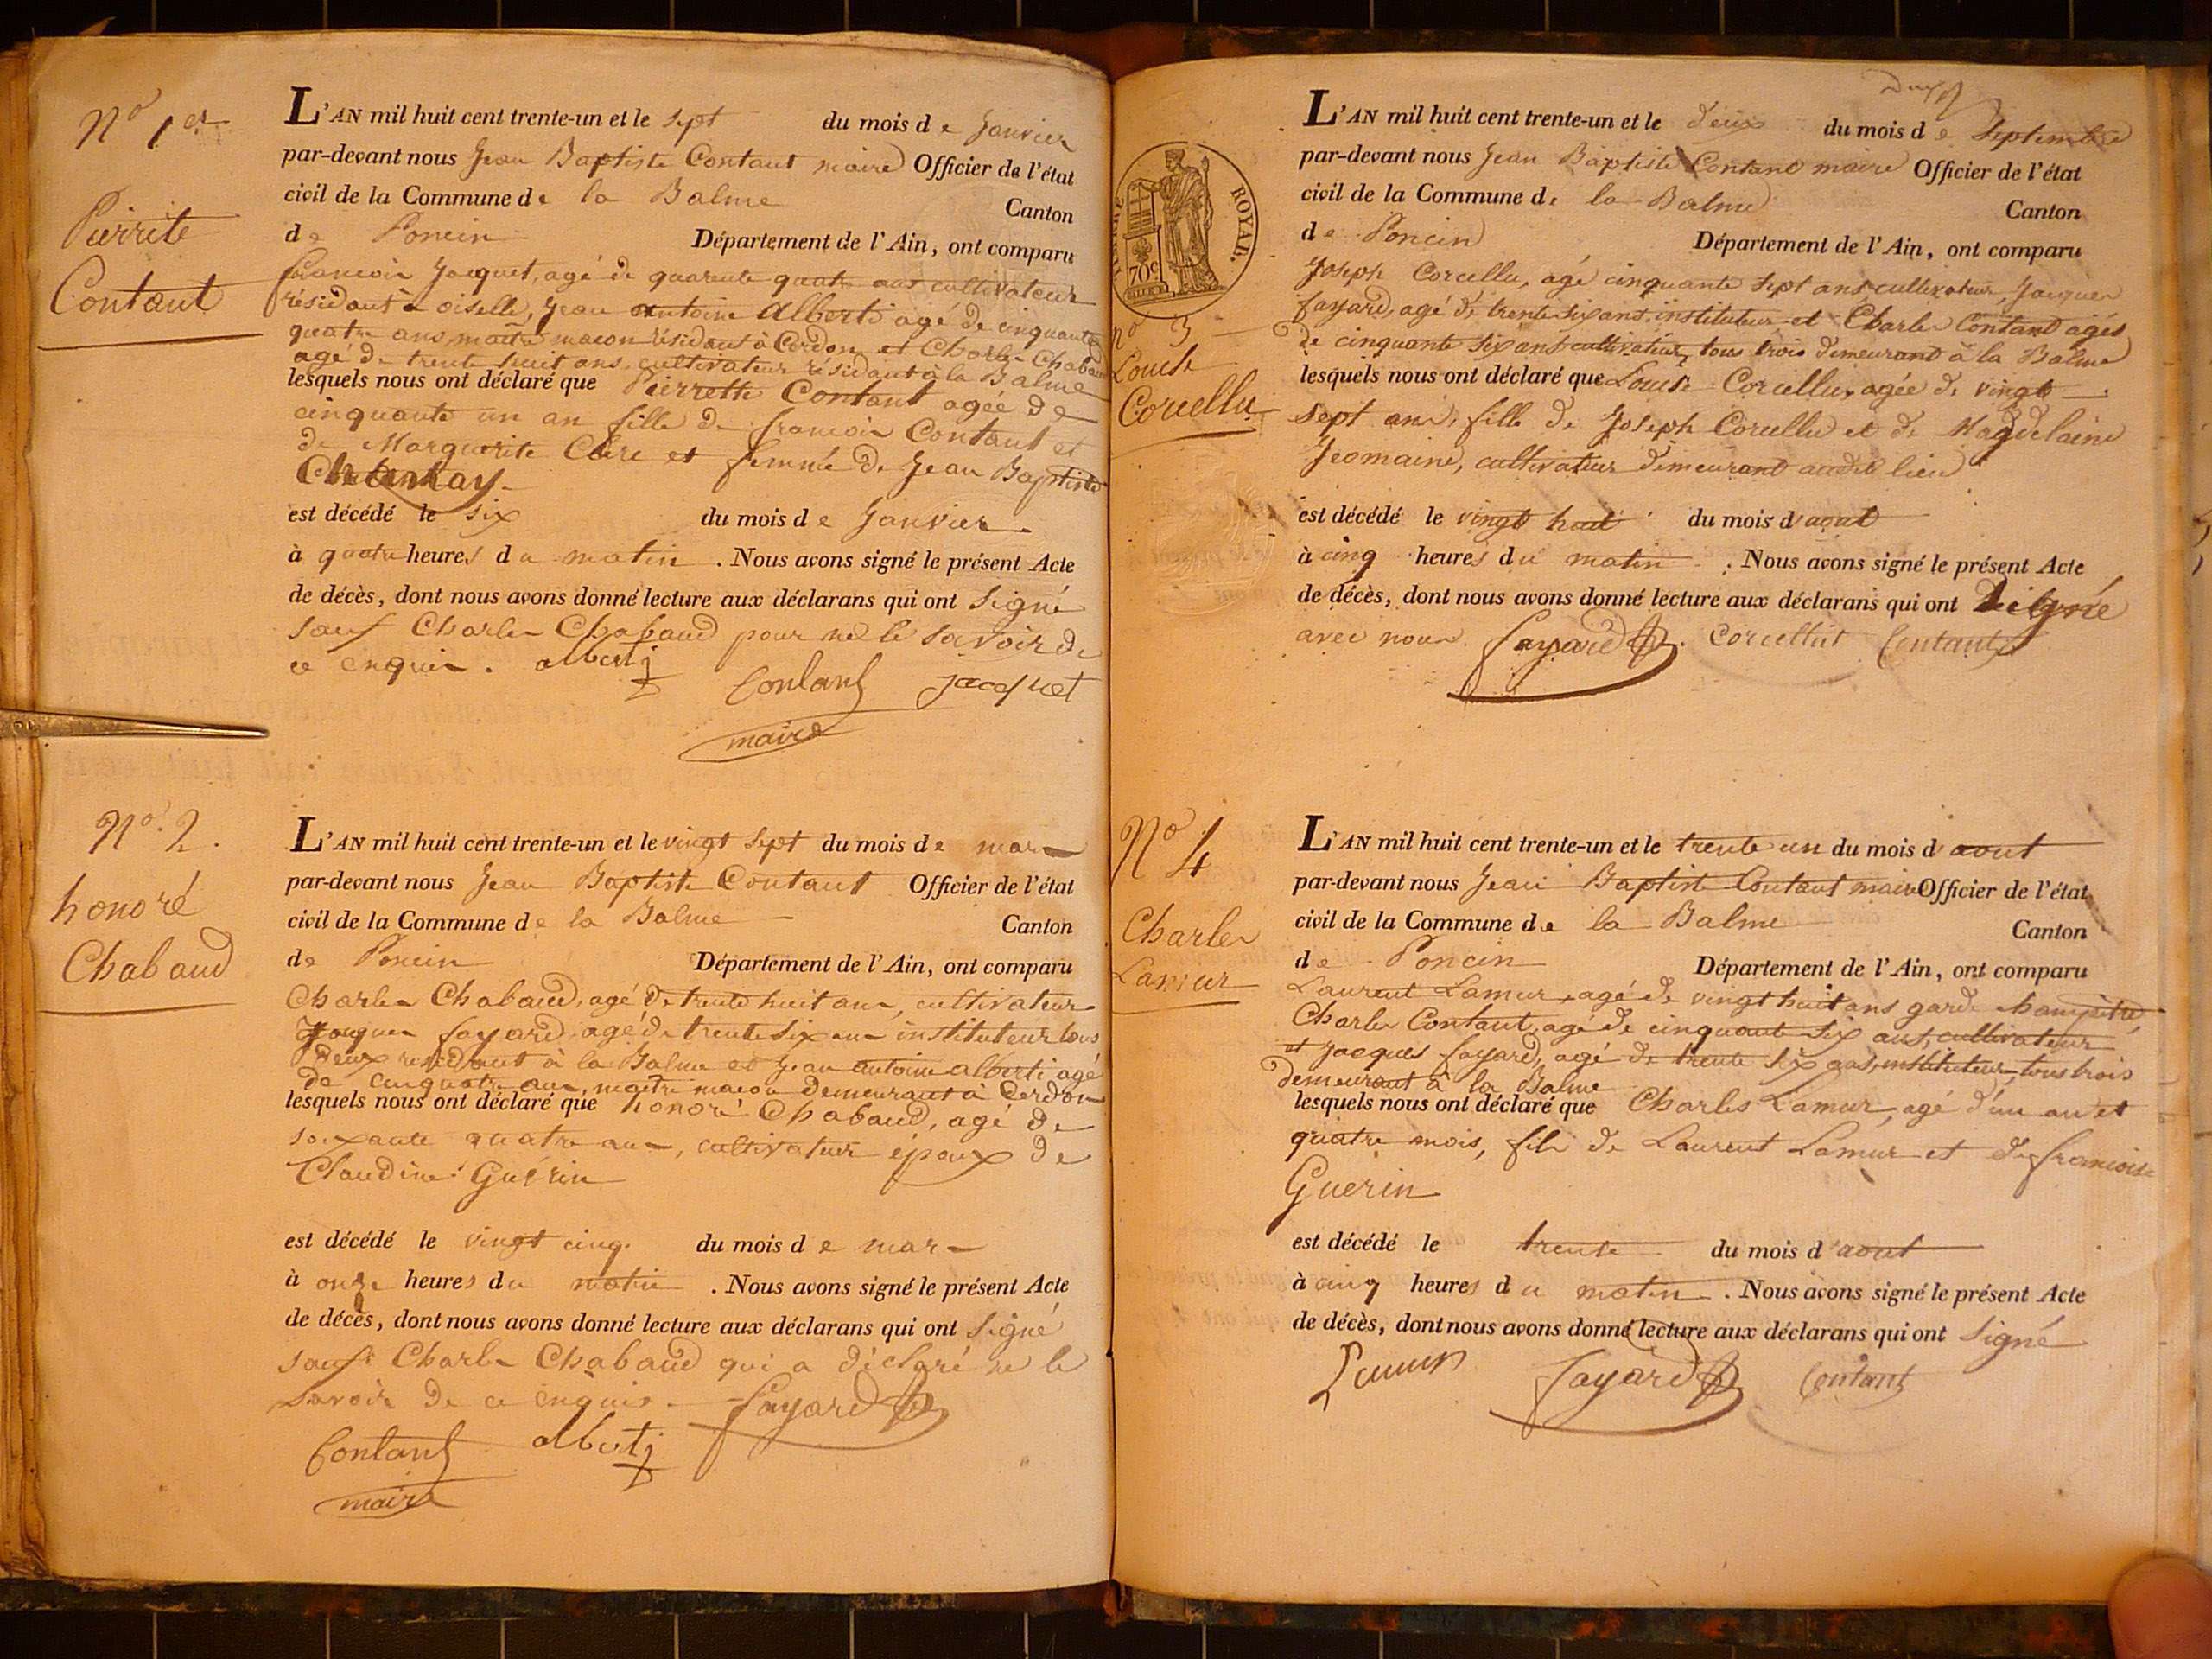 N° 1er
Pierrete
Contant
L'AN mil huit cent trente-un et le sept du mois de Janvier
par-devant nous Jean Baptiste Contant maire Officier de l'état
civil de la Commune de la Balme Canton
de Poncin Département de l'Ain, ont comparu
francois Jacquet, agé de quarante quatre ans cultivateur
résidant à oiselle, Jean antoine Alberti agé de cinquante
quatre ans, maître macon résidant à Cerdon et Charles Chabaud
agé de trente huit ans, cultivateur résidant à la Balme
lesquels nous ont déclaré que Pierrette Contant agée de
cinquante un an fille de francois Contant et
de Marguerite Clere et femme de Jean Baptiste
Chatenay
est décédé le six du mois de Janvier
à quatre heures du matin . Nous avons signé le présent Acte
de décès, dont nous avons donné lecture aux déclarans qui ont signé
sauf Charles Chabaud pour ne le savoir de
ce enquis. albertj
Contant Jacquet
maire
N° 2.
honoré
Chabaud
L'AN mil huit cent trente-un et le vingt sept du mois de mars
par-devant nous Jean Baptiste Contant Officier de l'état
civil de la Commune de la Balme Canton
de Poncin Département de l'Ain, ont comparu
Charles Chabaud, agé de trente huit ans, cultivateur
Jacques fayard agé de trente six ans instituteur tous
deux residant à la Balme et Jean antoine alberti agé
de cinquatre ans, maître macon demeurant à Cerdon
lesquels nous ont déclaré que honoré Chabaud, agé de
soixante quatre ans, cultivateur époux de
Claudine Guérin
est décédé le vingt cinq du mois de mars
à onze heures du matin . Nous avons signé le présent Acte
de décès, dont nous avons donné lecture aux déclarans qui ont signé
sauf Charles Chabaud qui a déclaré ne le
savoir de ce enquis. fayard
Contant albertj
maire
ROYAL.
70c
n° 3
Louise
Corcellu
L'AN mil huit cent trente-un et le deux du mois de Septembre
par-devant nous Jean Baptiste Contant maire Officier de l'état
civil de la Commune de la Balme Canton
de Poncin Département de l'Ain, ont comparu
Joseph Corcellu, agé cinquante sept ans cultivateur, Jacques
fayard, agé de trente six ans instituteur et Charles Contant agés
de cinquante six ans cultivateur, tous trois demeurant à la Balme
lesquels nous ont déclaré que Louise Corcellu, agée de vingt
sept ans, fille de Joseph Corcellu et de Magdelaine
Jeomaine, cultivateur demeurant audit lieu
est décédé le vingt huit du mois d'aout
à cinq heures du matin . Nous avons signé le présent Acte
de décès, dont nous avons donné lecture aux déclarans qui ont signé
avec nous fayard Corcellut Contant
N° 4
Charles
Lamur
L'AN mil huit cent trente-un et le trente un du mois d'aout
par-devant nous Jean Baptiste Contant maire Officier de l'état
civil de la Commune de la Balme Canton
de Poncin Département de l'Ain, ont comparu
Laurent Lamur, agé de vingt huit ans garde champêtre
Charles Contant, agé de cinquante six ans, cultivateur
et Jacques fayard, agé de trente six ans, instituteur, tous trois
demeurant à la Balme
lesquels nous ont déclaré que Charles Lamur, agé d'un an et
quatre mois, fils de Laurent Lamur et de francoise
Guerin
est décédé le trente du mois d'aout
à cinq heures du matin . Nous avons signé le présent Acte
de décès, dont nous avons donné lecture aux déclarans qui ont signé
Lamur fayard Contant